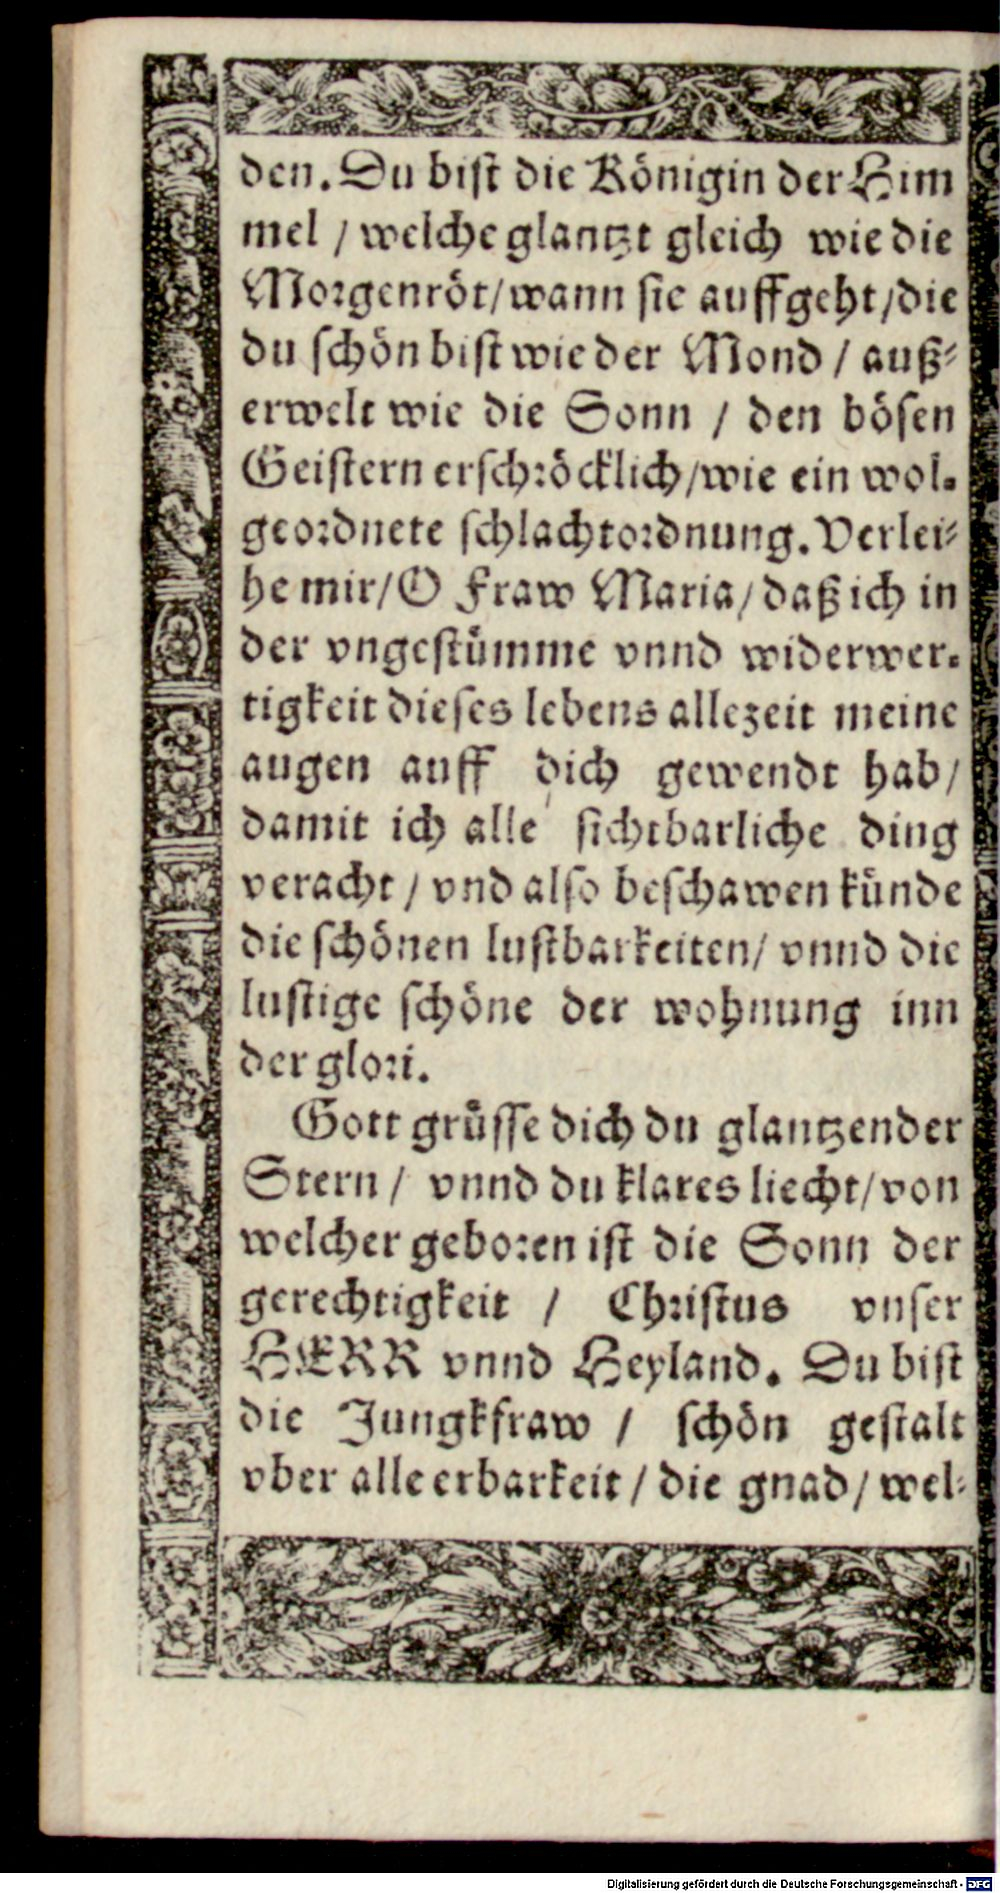 den. Du bist die Königin der Him
mel / welche glantzt gleich wie die
Morgenröt/wann sie auffgeht/die
du schön bist wie der Mond / auß-
erwelt wie die Sonn / den bösen
Geistern erschröcklich/wie ein wol-
geordnete schlachtordnung. Verlei-
he mir/O Fraw Maria/daß ich in
der vngestümme vnnd widerwer-
tigkeit dieses lebens allezeit meine
augen auff dich gewendt hab/
damit ich alle sichtbarliche ding
veracht / vnd also beschawen künde
die schönen lustbarkeiten/ vnnd die
lustige schöne der wohnung inn
der glori.
Gott grüsse dich du glantzender
Stern / vnnd du klares liecht/von
welcher geboren ist die Sonn der
gerechtigkeit / Christus vnser
HERR vnnd Heyland. Du bist
die Jungkfraw / schön gestalt
vber alle erbarkeit / die gnad / wel-
Digitalisierung gefördert durch die Deutsche Forschungsgemeinschaft - DFG